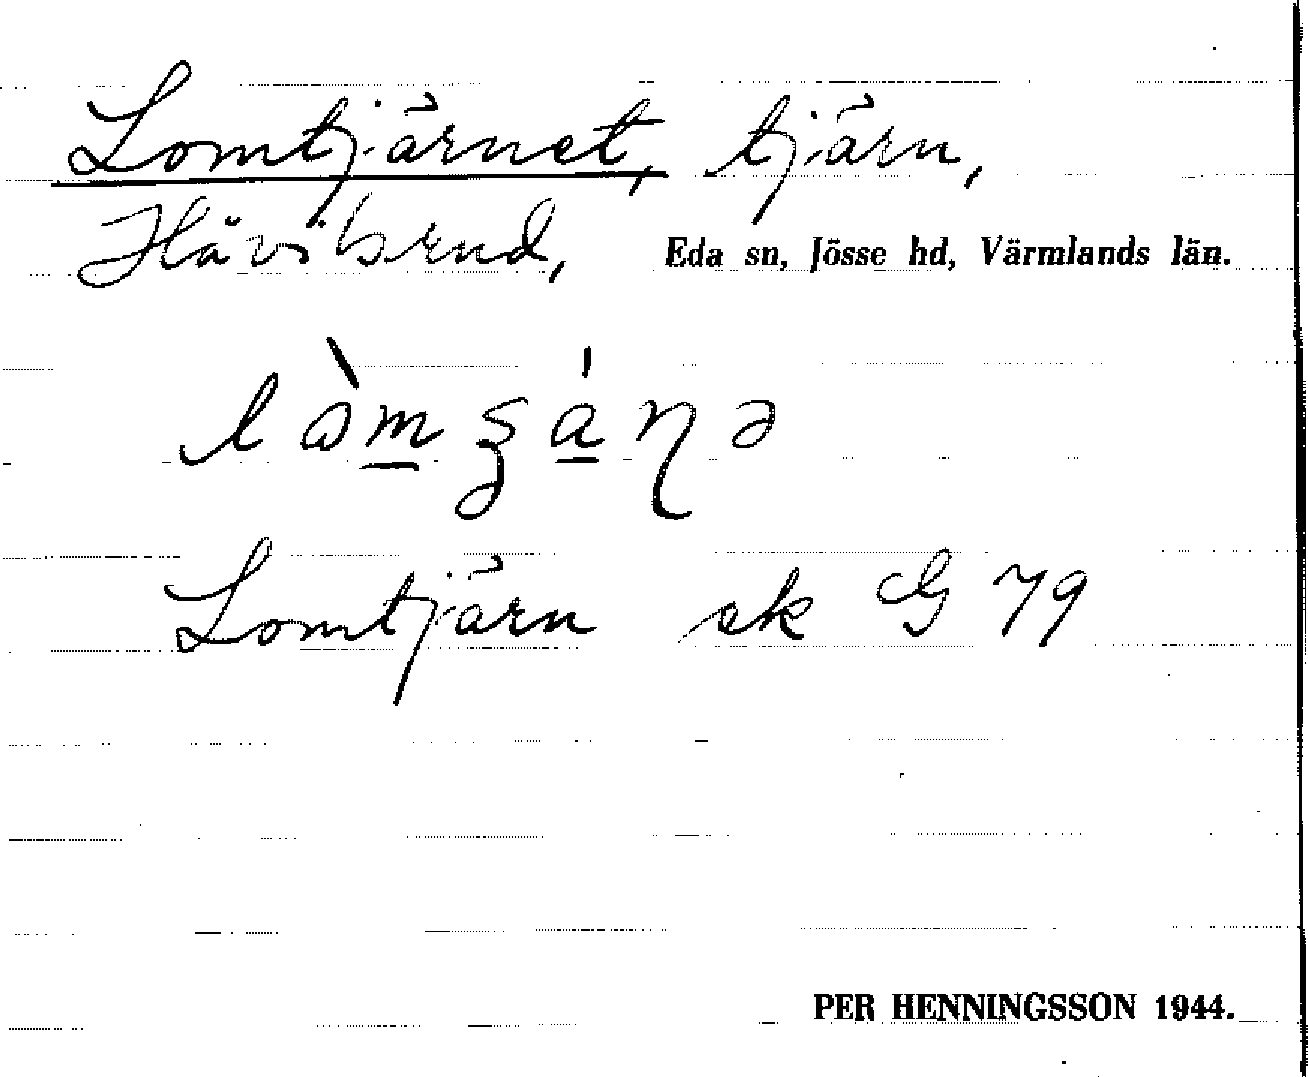 Lomtjärnet, tjärn,
Håvilsrud, Eda sn, Jösse hd, Värmlands län.
Lomtjärn ek G 79
PER HENNINGSSON 1944.